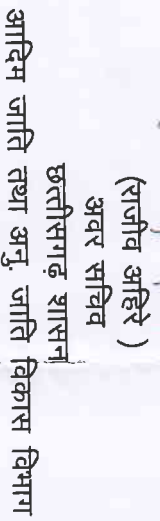 (राजीव अहिरे)
अवर सचिव
छत्तीसगढ़ शासन
आदिम जाति तथा अनु. जाति विकास विभाग